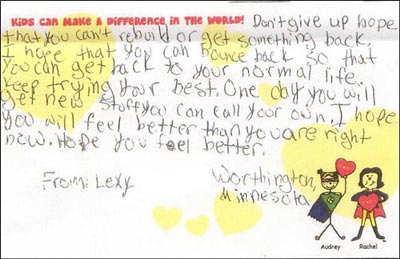 KIDS CAN MAKE A DIFFERENCE IN THE WORLD! Don't give up hope
that you can't rebuild or get something back.
I hope that you can bounce back so that
you can get back to your normal life.
Keep trying your best. One day you will
get new stuff you can call your own. I hope
you will feel better than you are right
now. Hope you feel better.
From: Lexy
Worthington,
Minnesota
Audrey Rachel